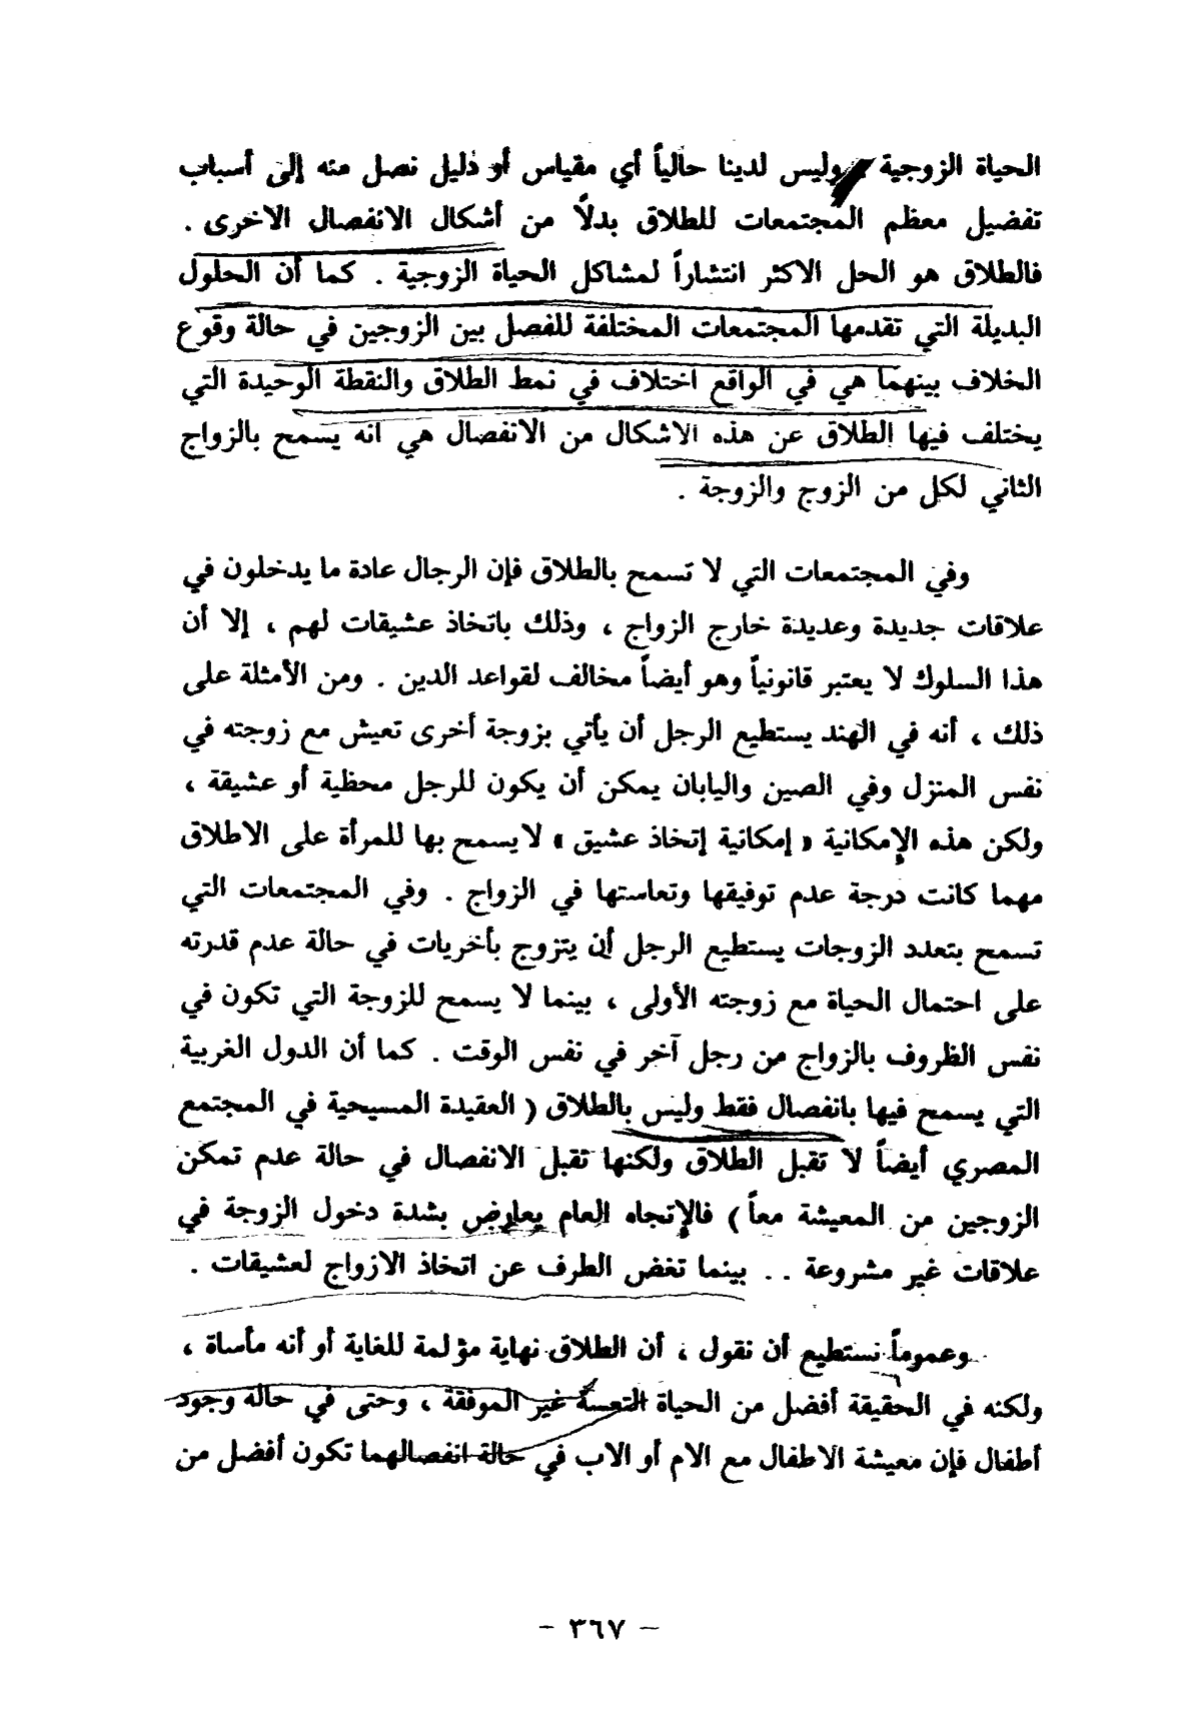 الحياة الزوجية . وليس لدينا حالياً أي مقياس أو دليل نصل منه إلى أسباب
تفضيل معظم المجتمعات للطلاق بدلاً من أشكال الانفصال الاخرى .
فالطلاق هو الحل الاكثر انتشاراً لمشاكل الحياة الزوجية . كما أن الحلول
البديلة التي تقدمها المجتمعات المختلفة للفصل بين الزوجين في حالة وقوع
الخلاف بينهما هي في الواقع اختلاف في نمط الطلاق والنقطة الوحيدة التي
يختلف فيها الطلاق عن هذه الاشكال من الانفصال هي انه يسمح بالزواج
الثاني لكل من الزوج والزوجة .
وفي المجتمعات التي لا تسمح بالطلاق فإن الرجال عادة ما يدخلون في
علاقات جديدة وعديدة خارج الزواج ، وذلك باتخاذ عشيقات لهم ، إلا أن
هذا السلوك لا يعتبر قانونياً وهو أيضاً مخالف لقواعد الدين . ومن الأمثلة على
ذلك ، أنه في الهند يستطيع الرجل أن يأتي بزوجة أخرى تعيش مع زوجته في
نفس المنزل وفي الصين واليابان يمكن أن يكون للرجل محظية أو عشيقة ،
ولكن هذه الإمكانية « إمكانية إتخاذ عشيق » لا يسمح بها للمرأة على الاطلاق
مهما كانت درجة عدم توفيقها وتعاستها في الزواج . وفي المجتمعات التي
تسمح بتعدد الزوجات يستطيع الرجل أن يتزوج بأخريات في حالة عدم قدرته
على احتمال الحياة مع زوجته الأولى ، بينما لا يسمح للزوجة التي تكون في
نفس الظروف بالزواج من رجل آخر في نفس الوقت . كما أن الدول الغربية
التي يسمح فيها بانفصال فقط وليس بالطلاق ( العقيدة المسيحية في المجتمع
المصري أيضاً لا تقبل الطلاق ولكنها تقبل الانفصال في حالة عدم تمكن
الزوجين من المعيشة معاً ) فالإتجاه العام يعارض بشدة دخول الزوجة في
علاقات غير مشروعة . . بينما تغض الطرف عن اتخاذ الازواج لعشيقات .
وعموماً نستطيع أن نقول ، أن الطلاق نهاية مؤلمة للغاية أو أنه مأساة ،
ولكنه في الحقيقة أفضل من الحياة التعسة غير الموفقة ، وحتى في حالة وجود
أطفال فإن معيشة الاطفال مع الام أو الاب في حالة انفصالهما تكون أفضل من
- ٣٦٧ -